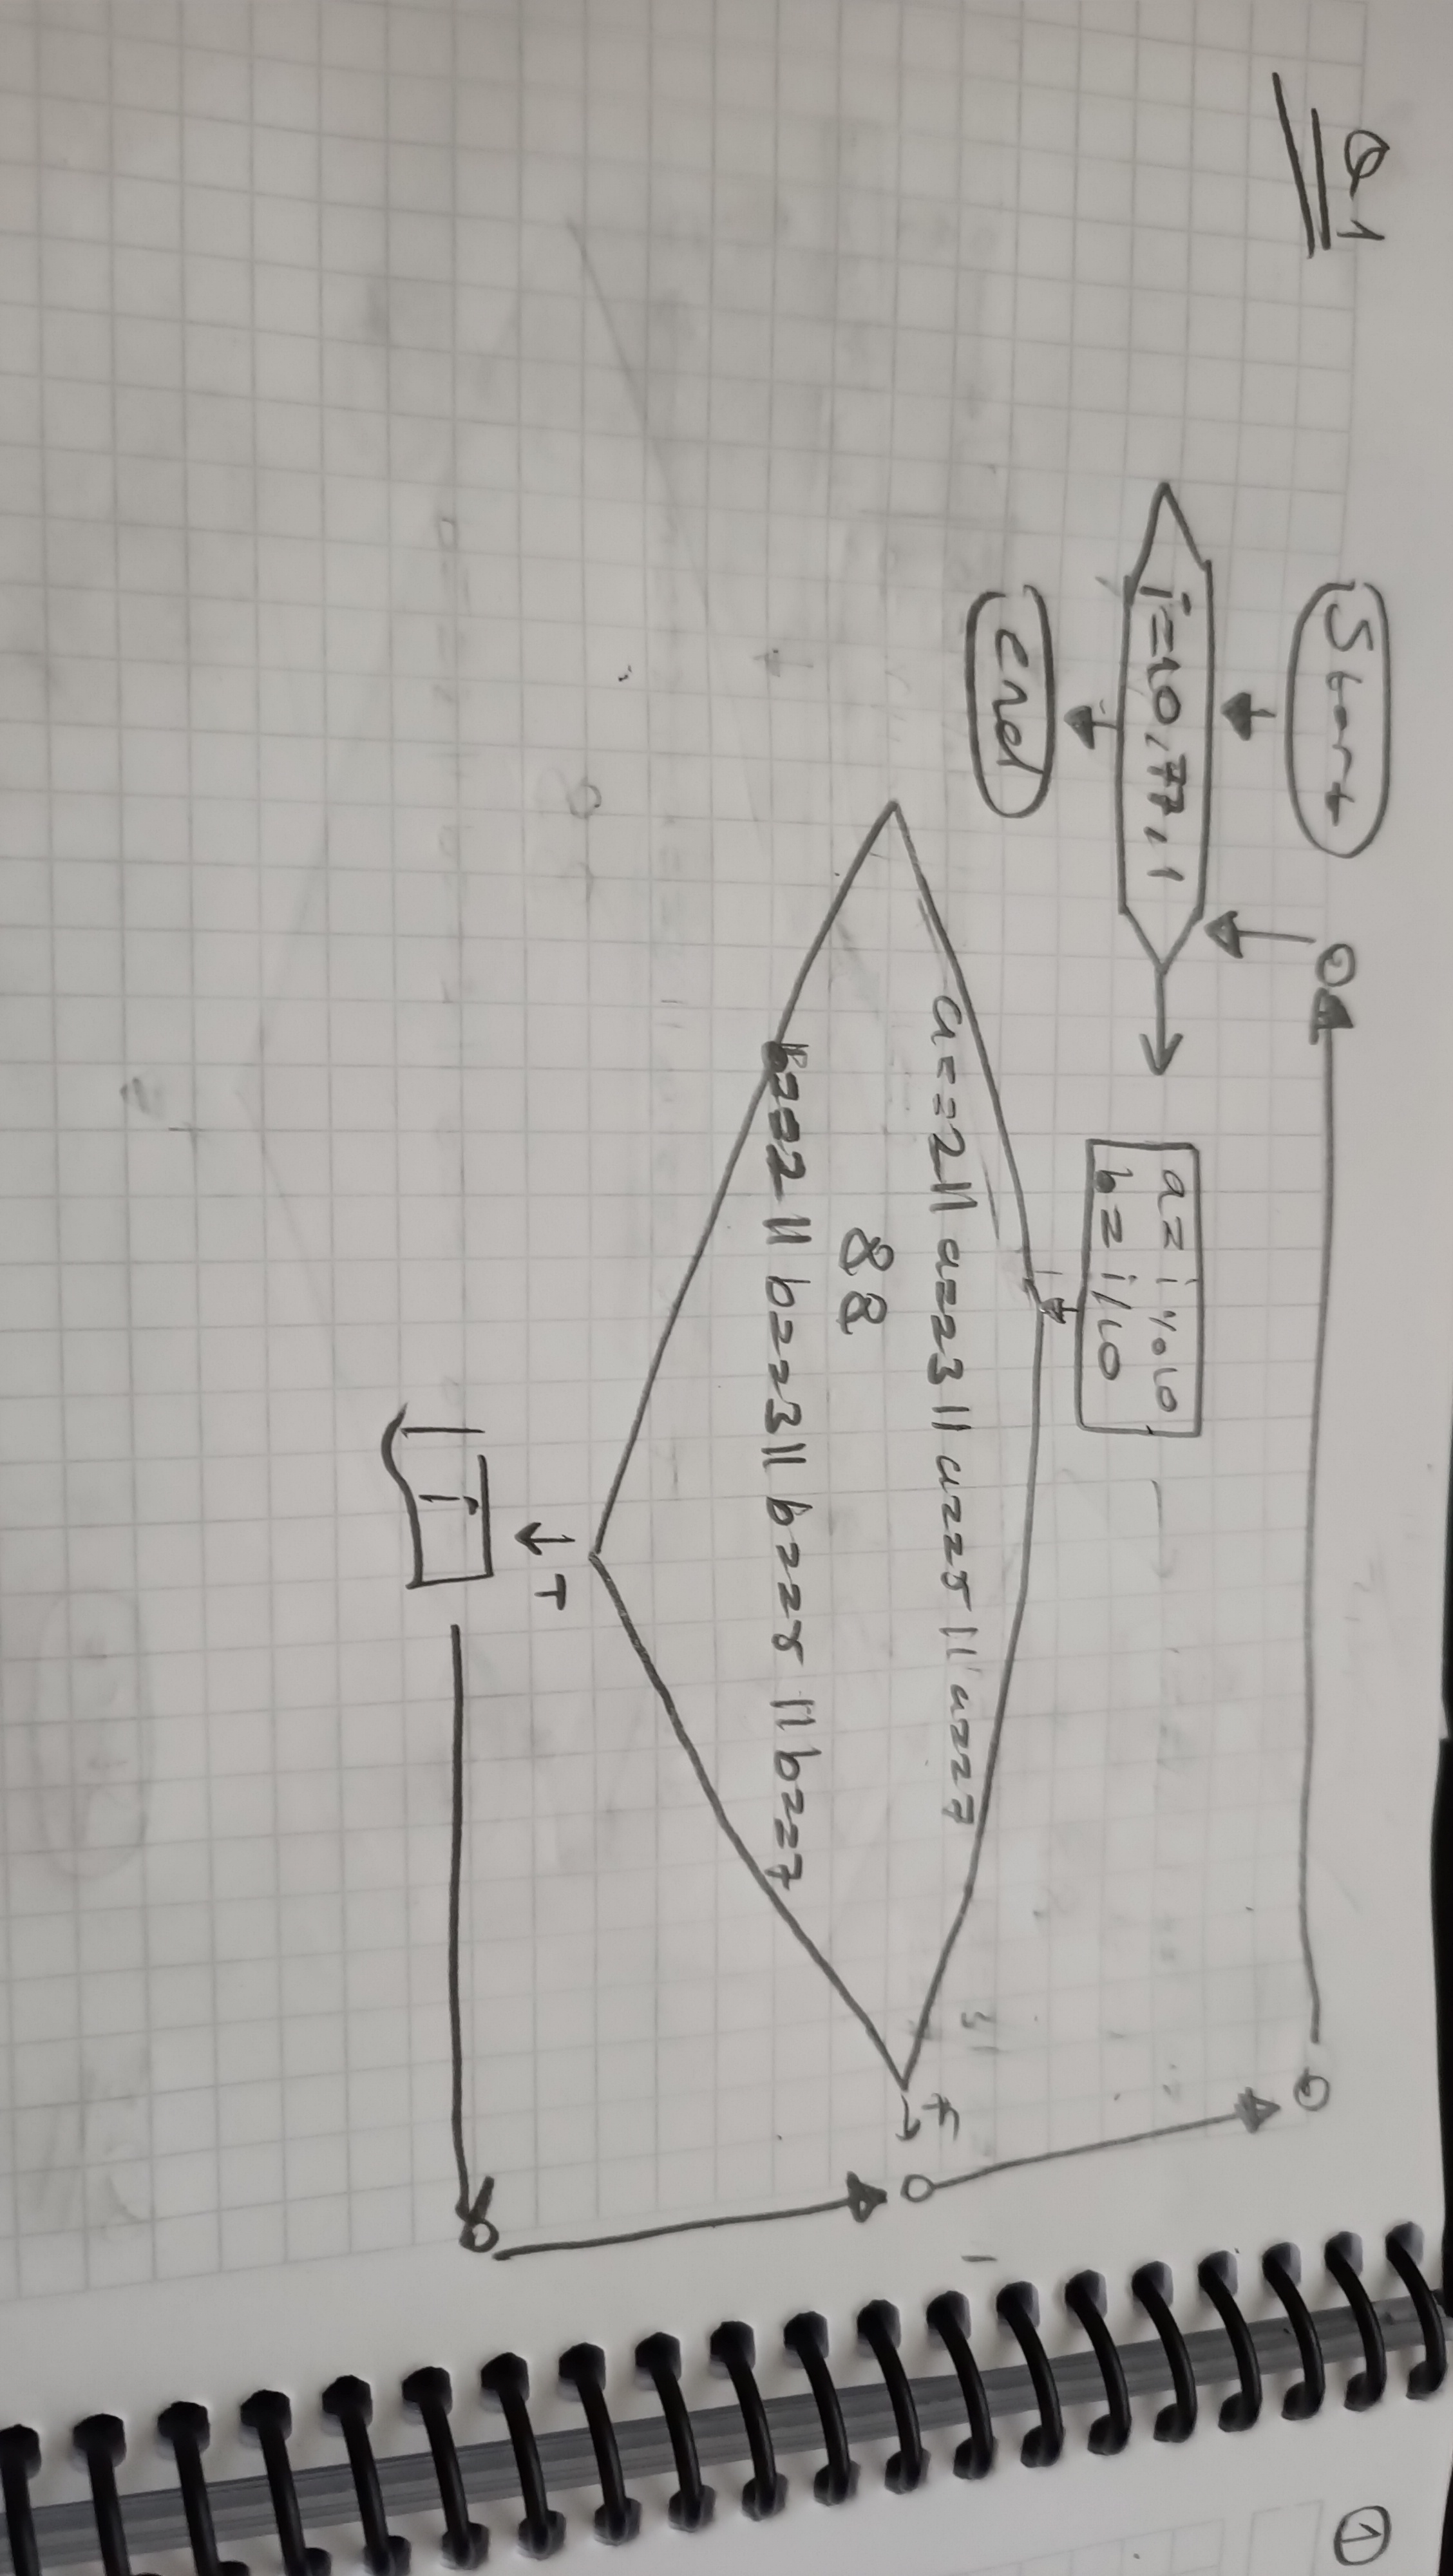 Q.1
Start
i=10,77,1
end
a=i%10
b=i/10
a==2||a==3||a==5||a==7
&&
b==2||b==3||b==5||b==7
F
T
i
1